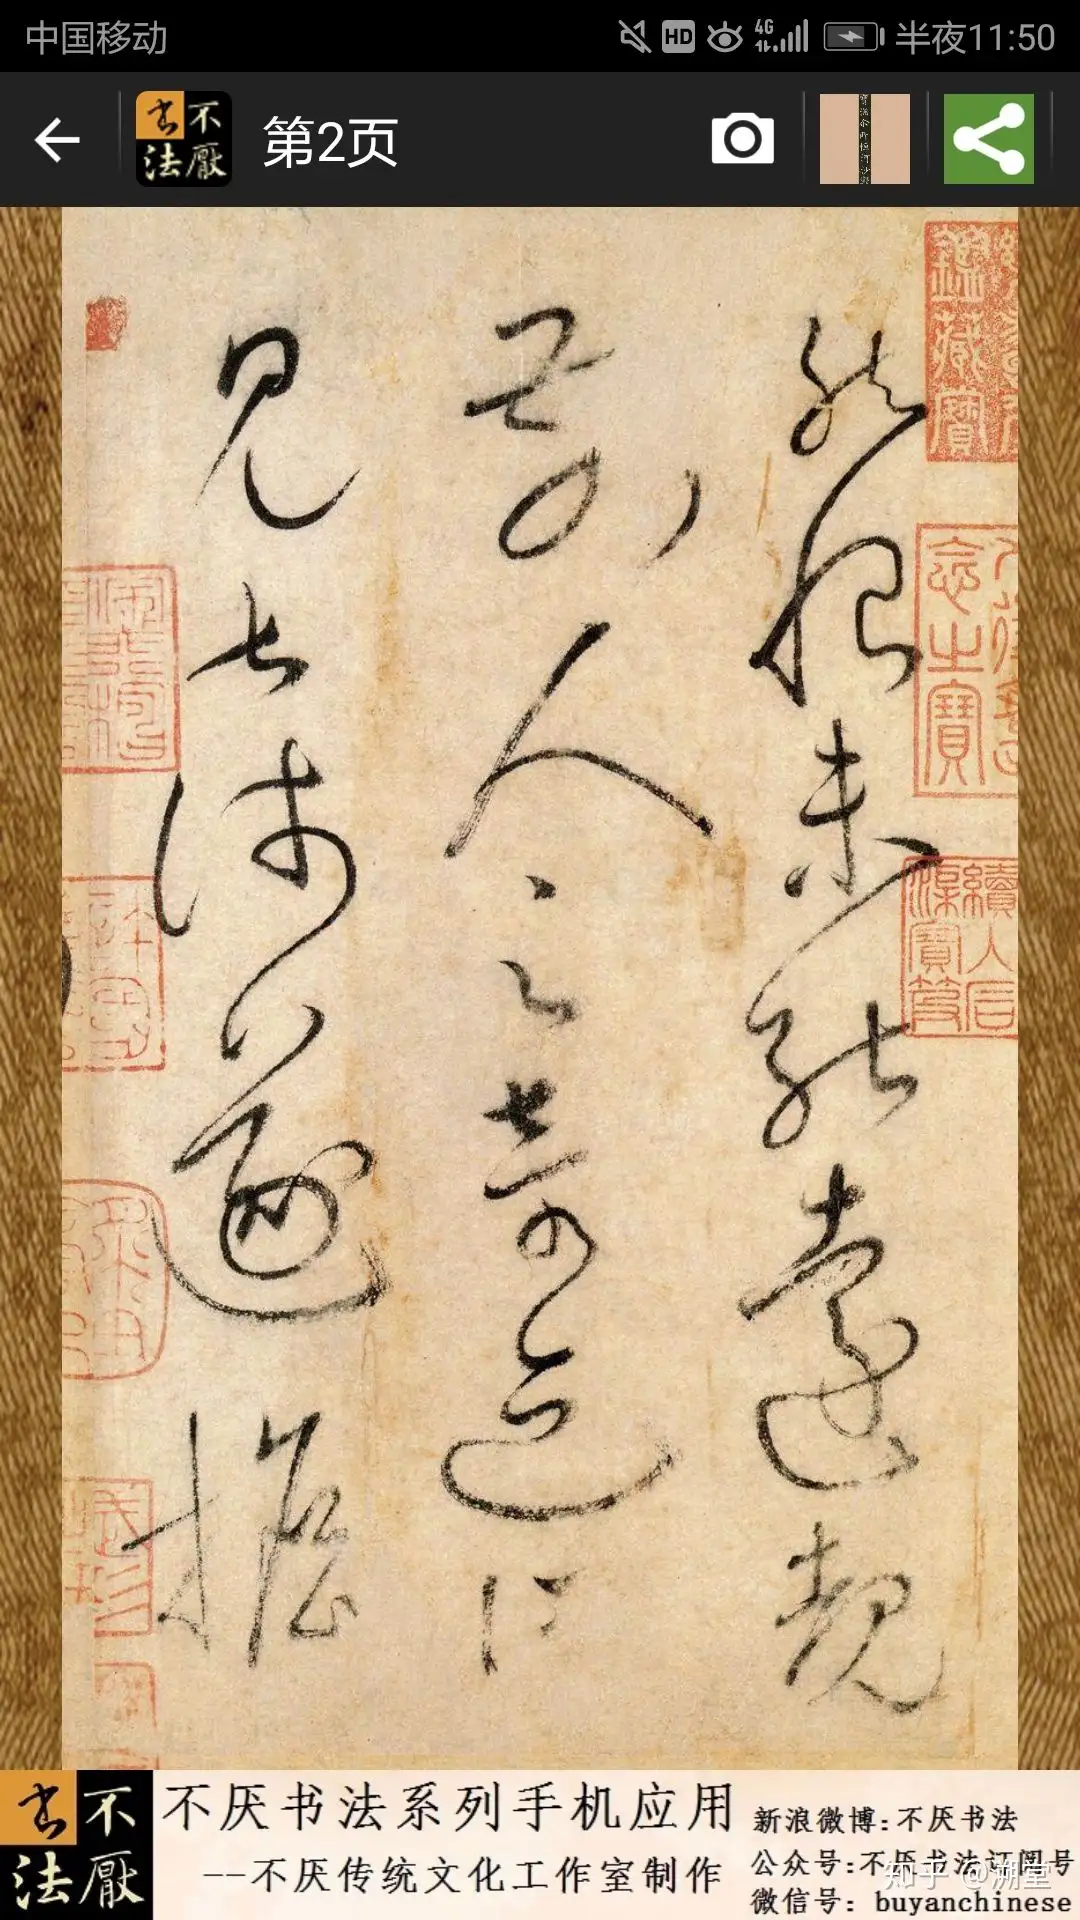 中国移动 HD 4G 半夜11:50
不厭书法 第2页
然恨未能遠覩
前人之奇迹所
見甚淺遂擔
鑑藏寶
不厭书法
不厌书法系列手机应用
--不厌传统文化工作室制作
新浪微博:不厌书法
公众号:不厌书法订阅号
微信号: buyanchinese
知乎 @溯堂